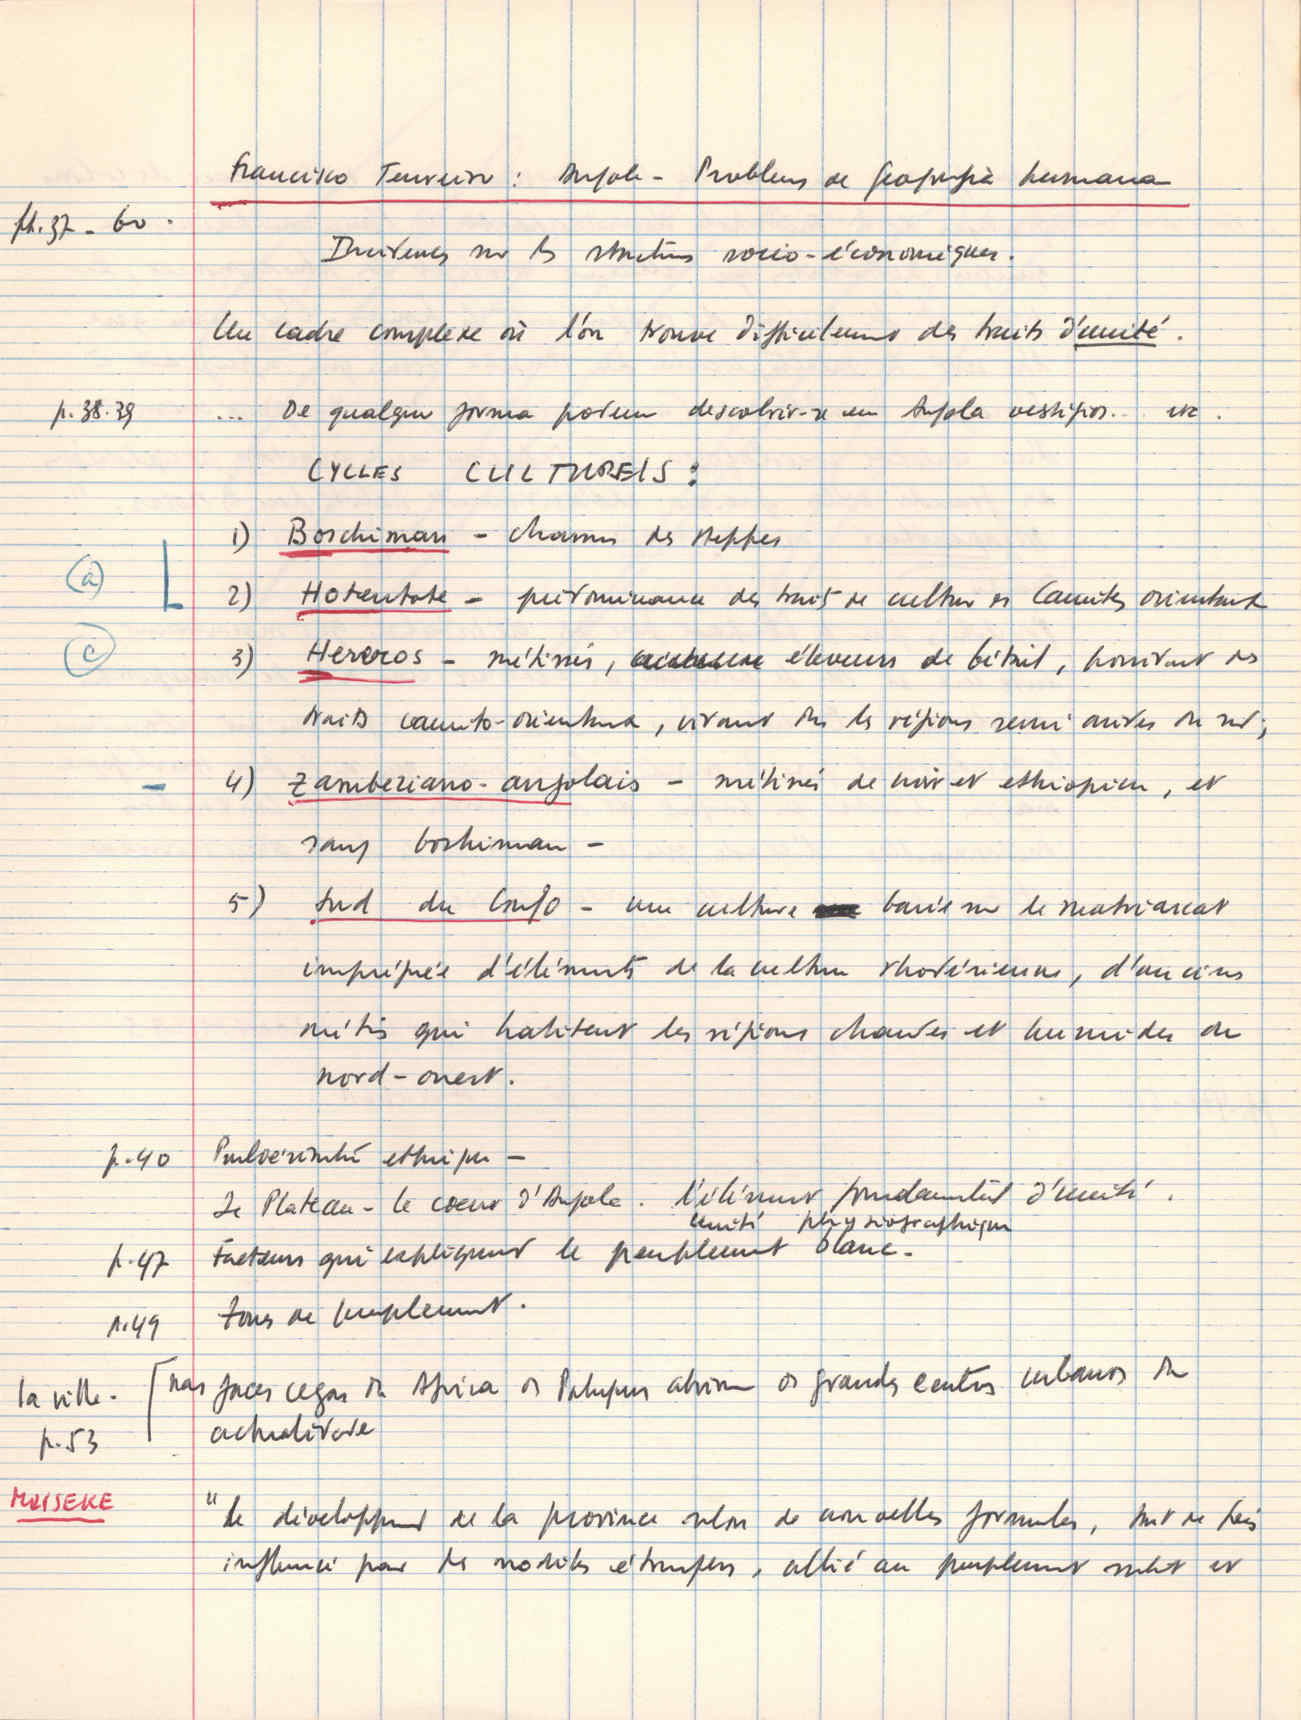 Francisco Tenreiro : Angola - Problemas de geografia humana
pp. 37 - 60.
sur les structures socio-économiques.
Un cadre complexe où l'on trouve difficilement des traits d'unité.
p. 38.39 ... De qualquer forma podem descobrir-se em Angola vestigios... etc.
CYCLES CULTURELS :
1) Boschiman - chasseurs des steppes
(a) 2) Hotentote - prédominance des traits de culture des Camites orientaux
(c) 3) Hereros - métissés, éleveurs de bétail, possédant des
traits camito-orientaux, vivant dans les régions semi arides du sud ;
4) Zambeziano-angolais - métissés de noir et ethiopien, et
sang boshiman -
5) Sud du Congo - une culture basée sur le matriarcat
imprégnée d'éléments de la culture rhodésienne, d'anciens
métis qui habitent les régions chaudes et humides du
nord-ouest.
p. 40 Pulvérisation ethnique -
Le Plateau - le coeur d'Angola. l'élément fondamental d'unité.
unité physiographique
p. 47 Facteurs qui expliquent le peuplement blanc -
p. 49 Zones de peuplement.
la ville - nas faces cegas da Africa os Portugueses abriram os grandes centros urbanos da
p. 53 actualidade
MUSEKE "Le développement de la province selon de nouvelles formules, tant de fois
influencé par des modèles étrangers, allié au peuplement et